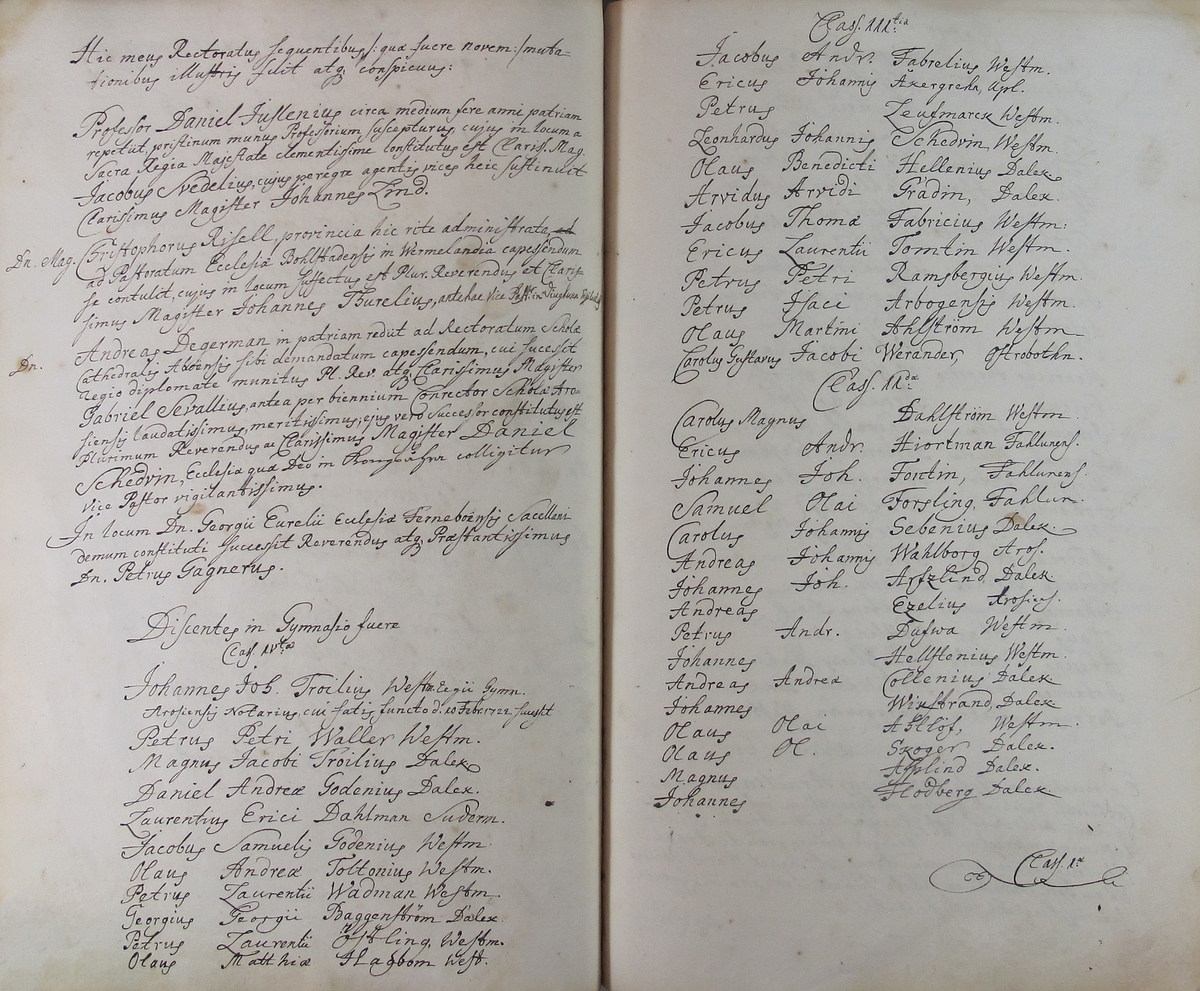 Hic meus Rectoratus sequentibus /: quæ fuere novem :/ muta-
tionibus illustris fuit atq. conspicuus:
Professor Daniel Juslenius circa medium fere anni patriam
repetiit, pristinum munus Professorium suscepturus, cujus in locum a
Sacra Regia Majestate clementissime constitutus est Clariss. Mag.
Jacobus Svedelius, cujus peregre agentis vices heic sustinuit
Clarissimus Magister Johannes Lind.
Dn. Mag. Christophorus Risell, provincia hic rite administrata, ad
ad Pastoratum Ecclesiæ Bohlstadensis in Wermelandia capessendum
se contulit, cujus in locum suffectus est Plur. Reverendus et Claris-
simus Magister Johannes Thurelius, antehac Vice Past. in
Dn. Andreas Degerman in patriam rediit ad Rectoratum Scholæ
Cathedralis Aboensis sibi demandatum capessendum, cui sucessit
regio diplomate munitus Pl. Rev. atq. Clarissimus Magister
Gabriel Sevallius, antea per biennium Conrector Scholæ Aro-
siensis laudatissimus, meritissimus, ejus vero successor constitutus est
Plurimum Reverendus ac Clarissimus Magister Daniel
Schedvin, Ecclesiæ quæ Deo in Kongsåhra colligitur
Vice Pastor vigilantissimus.
In locum Dn. Georgii Eurelii Ecclesiæ Ferneboënsis Sacellani
demum constituti successit Reverendus atq. Præstantissimus
Dn. Petrus Gagnerus.
Discentes in Gymnasio fuere
Class. IV.ta
Johannes Joh. Troilius Westm. Regii Gymn.
Arosiensis Notarius, cui fatis functo d. 10 Febr. 1722. success.it
Petrus Petri Waller Westm.
Magnus Jacobi Troilius Dalek.
Daniel Andreæ Godenius Dalek.
Laurentius Erici Dahlman Suderm.
Jacobus Samuelis Godenius Westm.
Olaus Andreæ Toltonius Westm.
Petrus Laurentii Wadman Westm.
Georgius Georgii Baggenström Dalek.
Petrus Laurentii Östling, Westm.
Olaus Matthiæ Hagbom West.
Class. III.tia
Jacobus Andr. Fabrelius Westm.
Ericus Johannis Åkergrehn, Upl.
Petrus Leufmarck Westm.
Leonhardus Johannis Schedvin, Westm.
Olaus Benedicti Hellenius Dalek.
Arvidus Arvidi Gradin, Dalek.
Jacobus Thomæ Fabricius Westm:
Ericus Laurentii Tomtin Westm.
Petrus Petri Ramsbergius Westm.
Petrus Isaci Arbogensis Westm.
Olaus Martini Ahlström Westm
Carolus Gustavus Jacobi Werander, Ostrobothn.
Class. II.da
Carolus Magnus Dahlström Westm.
Ericus Andr. Hiortman Fahlunens.
Johannes Joh. Fontin, Fahlunens.
Samuel Olai Forsling, Fahlun.
Carolus Johannis Sebenius Dalek.
Andreas Johannis Wahlborg Aros.
Johannes Joh. Arfzlind, Dalek.
Andreas Ezelius Arosiens.
Petrus Andr. Dufwa Westm.
Johannes Hellstenius Westm.
Andreas Andreæ Collenius Dalek.
Johannes Winbrand, Dalek
Olaus Olai Ahllöf, Westm.
Olaus Ol. Skoger Dalek.
Magnus Asplind Dalek.
Johannes Flodberg Dalek
Class. I.a